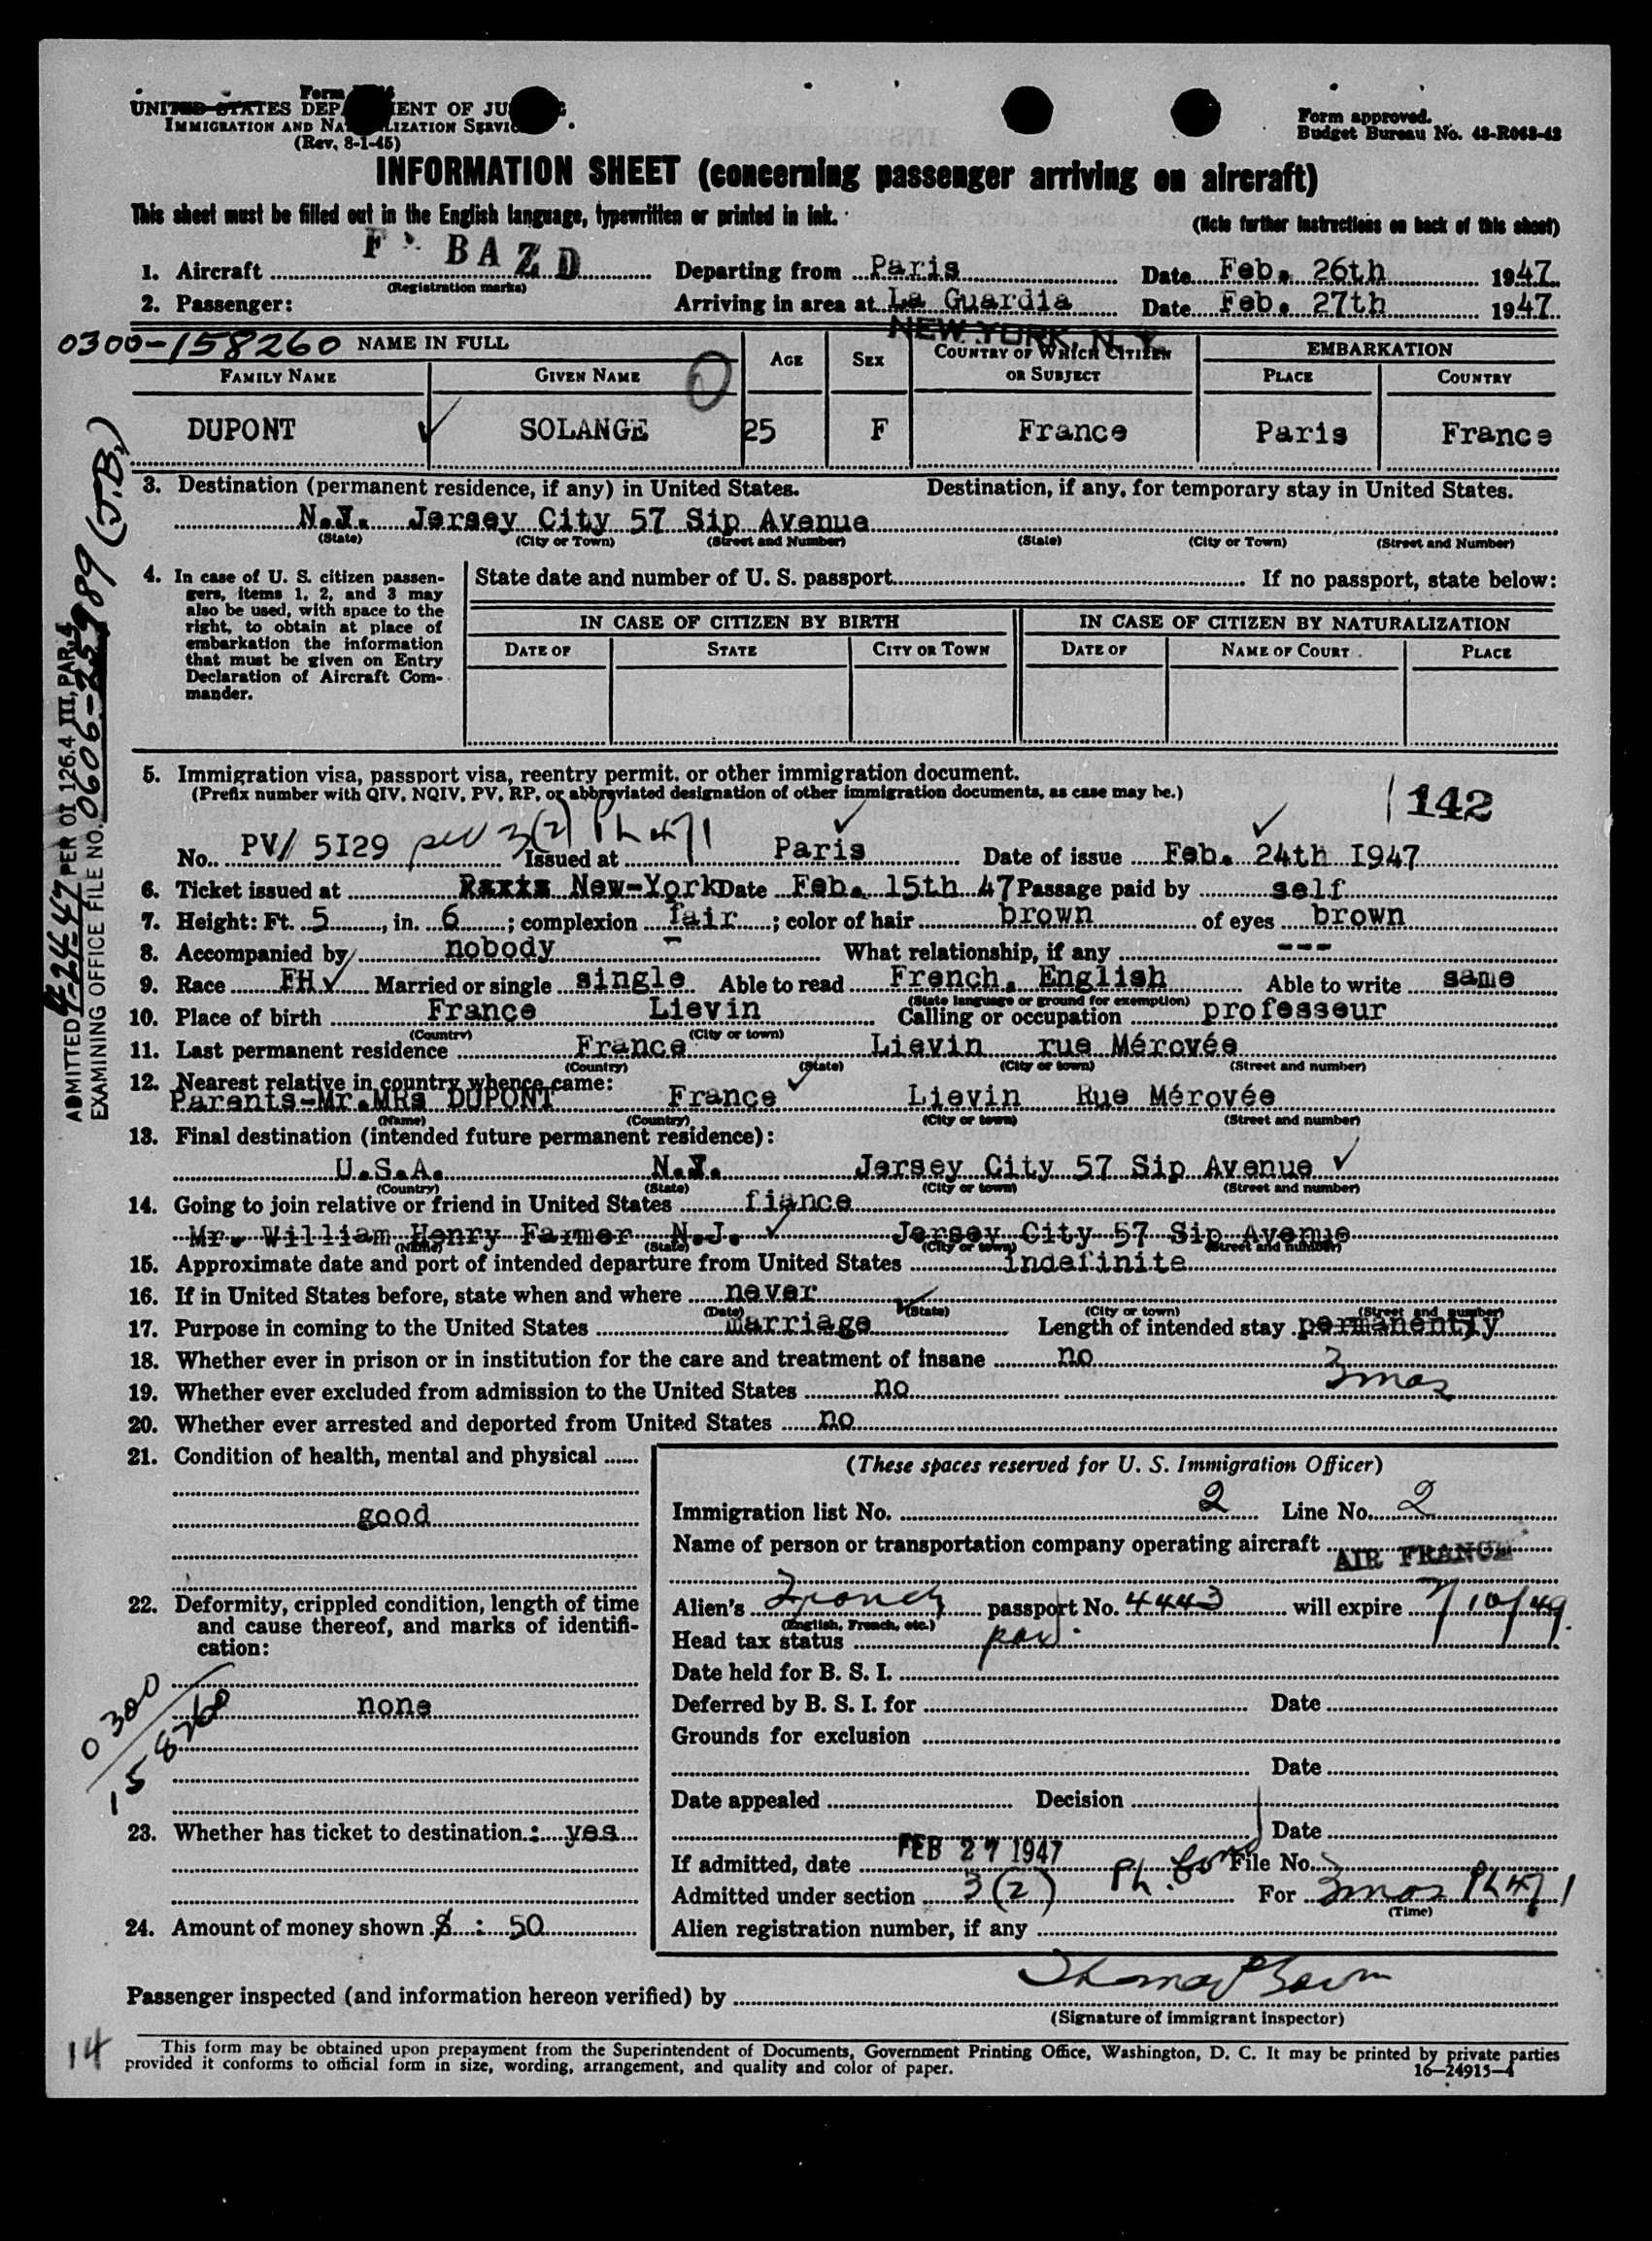 Form
UNITED STATES DEPARTMENT OF JUSTICE
IMMIGRATION AND NATURALIZATION SERVICE
(Rev. 8-1-45)
Form approved.
Budget Bureau No. 43-R063-42
INFORMATION SHEET (concerning passenger arriving on aircraft)
This sheet must be filled out in the English language, typewritten or printed in ink.
(Note further instructions on back of this sheet)
1. Aircraft F BAZD Departing from Paris Date Feb. 26th 1947
(Registration marks)
2. Passenger: Arriving in area at La Guardia Date Feb. 27th 1947
NEW YORK, N. Y.
0300-158260 NAME IN FULL AGE SEX COUNTRY OF WHICH CITIZEN OR SUBJECT EMBARKATION
FAMILY NAME GIVEN NAME PLACE COUNTRY
DUPONT SOLANGE 25 F France Paris France
3. Destination (permanent residence, if any) in United States. Destination, if any, for temporary stay in United States.
N.J. Jersey City 57 Sip Avenue
(State) (City or Town) (Street and Number) (State) (City or Town) (Street and Number)
4. In case of U. S. citizen passengers, items 1, 2, and 3 may also be used, with space to the right, to obtain at place of embarkation the information that must be given on Entry Declaration of Aircraft Commander.
State date and number of U. S. passport If no passport, state below:
IN CASE OF CITIZEN BY BIRTH IN CASE OF CITIZEN BY NATURALIZATION
DATE OF STATE CITY OR TOWN DATE OF NAME OF COURT PLACE
5. Immigration visa, passport visa, reentry permit, or other immigration document.
(Prefix number with QIV, NQIV, PV, RP, or abbreviated designation of other immigration documents, as case may be.)
142
No. PV/ 5I29 3(2) PL 471 Issued at Paris Date of issue Feb. 24th I947
6. Ticket issued at Paris New-York Date Feb. 15th 47 Passage paid by self
7. Height: Ft. 5, in. 6; complexion fair; color of hair brown of eyes brown
8. Accompanied by nobody What relationship, if any ---
9. Race FH Married or single single Able to read French, English Able to write same
(State language or ground for exemption)
10. Place of birth France Lievin Calling or occupation professeur
(Country) (City or town)
11. Last permanent residence France Lievin rue Mérovée
(Country) (State) (City or town) (Street and number)
12. Nearest relative in country whence came:
Parents-Mr.MRs DUPONT France Lievin Rue Mérovée
(Name) (Country) (City or town) (Street and number)
13. Final destination (intended future permanent residence):
U.S.A. N.J. Jersey City 57 Sip Avenue
(Country) (State) (City or town) (Street and number)
14. Going to join relative or friend in United States fiance
Mr. William Henry Farmer N.J. Jersey City 57 Sip Avenue
(Name) (State) (City or town) (Street and number)
15. Approximate date and port of intended departure from United States indefinite
16. If in United States before, state when and where never
(Date) (State) (City or town) (Street and number)
17. Purpose in coming to the United States marriage Length of intended stay permanently
18. Whether ever in prison or in institution for the care and treatment of insane no
3 mos
19. Whether ever excluded from admission to the United States no
20. Whether ever arrested and deported from United States no
21. Condition of health, mental and physical
good
22. Deformity, crippled condition, length of time and cause thereof, and marks of identification:
none
0300
158260
23. Whether has ticket to destination : yes
24. Amount of money shown $ : 50
(These spaces reserved for U. S. Immigration Officer)
Immigration list No. 2 Line No. 2
Name of person or transportation company operating aircraft AIR FRANCE
Alien's French passport No. 4443 will expire 2/10/49.
(English, French, etc.)
Head tax status
Date held for B. S. I.
Deferred by B. S. I. for Date
Grounds for exclusion
Date
Date appealed Decision
Date
If admitted, date FEB 27 1947 File No.
Admitted under section 3(2) For 3 mos PL 471
(Time)
Alien registration number, if any
Passenger inspected (and information hereon verified) by
(Signature of immigrant inspector)
14
This form may be obtained upon prepayment from the Superintendent of Documents, Government Printing Office, Washington, D. C. It may be printed by private parties
provided it conforms to official form in size, wording, arrangement, and quality and color of paper. 16—24915-4
ADMITTED 4-24-47 PER OI 126.4 III, PAR 4
EXAMINING OFFICE FILE NO. (J.B.)